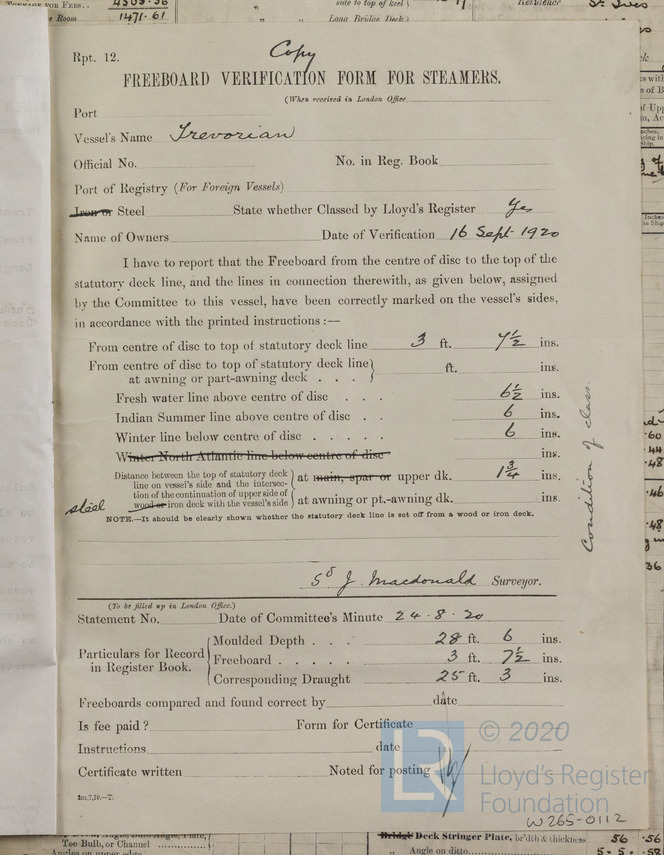 TONNAGE FOR FEES.. 4303·56
e Room 1471·61
side to top of keel
Long Bridge Deck
Residence St. Ives
Copy
Rpt. 12.
FREEBOARD VERIFICATION FORM FOR STEAMERS.
(When received in London Office
Port
Vessel's Name Trevorian
Official No. No. in Reg. Book
Port of Registry (For Foreign Vessels)
Iron or Steel State whether Classed by Lloyd's Register Yes
Name of Owners Date of Verification 16 Sept. 1920
I have to report that the Freeboard from the centre of disc to the top of the
statutory deck line, and the lines in connection therewith, as given below, assigned
by the Committee to this vessel, have been correctly marked on the vessel's sides,
in accordance with the printed instructions :—
From centre of disc to top of statutory deck line 3 ft. 7½ ins.
From centre of disc to top of statutory deck line
at awning or part-awning deck . . . ft. ins.
Fresh water line above centre of disc . . . 6½ ins.
Indian Summer line above centre of disc . . 6 ins.
Winter line below centre of disc . . . . . 6 ins.
Winter North Atlantic line below centre of disc ins.
Distance between the top of statutory deck
line on vessel's side and the intersec-
tion of the continuation of upper side of
wood or iron deck with the vessel's side
steel
at main, spar or upper dk. 1¾ ins.
at awning or pt.-awning dk. ins.
NOTE.—It should be clearly shown whether the statutory deck line is set off from a wood or iron deck.
Condition of class.
Sd J. Macdonald Surveyor.
(To be filled up in London Office.)
Statement No. Date of Committee's Minute 24·8·20
Particulars for Record
in Register Book.
Moulded Depth . . . 28 ft. 6 ins.
Freeboard . . . . . 3 ft. 7½ ins.
Corresponding Draught 25 ft. 3 ins.
Freeboards compared and found correct by date
Is fee paid ? Form for Certificate
Instructions date
Certificate written Noted for posting
2m,7,19.—T.
LR
© 2020
Lloyd's Register
Foundation
W265-0112
Tee Bulb, or Channel
Angles on upper edge
Bridge Deck Stringer Plate, br'dth & thickness 56 ·56
Angle on ditto